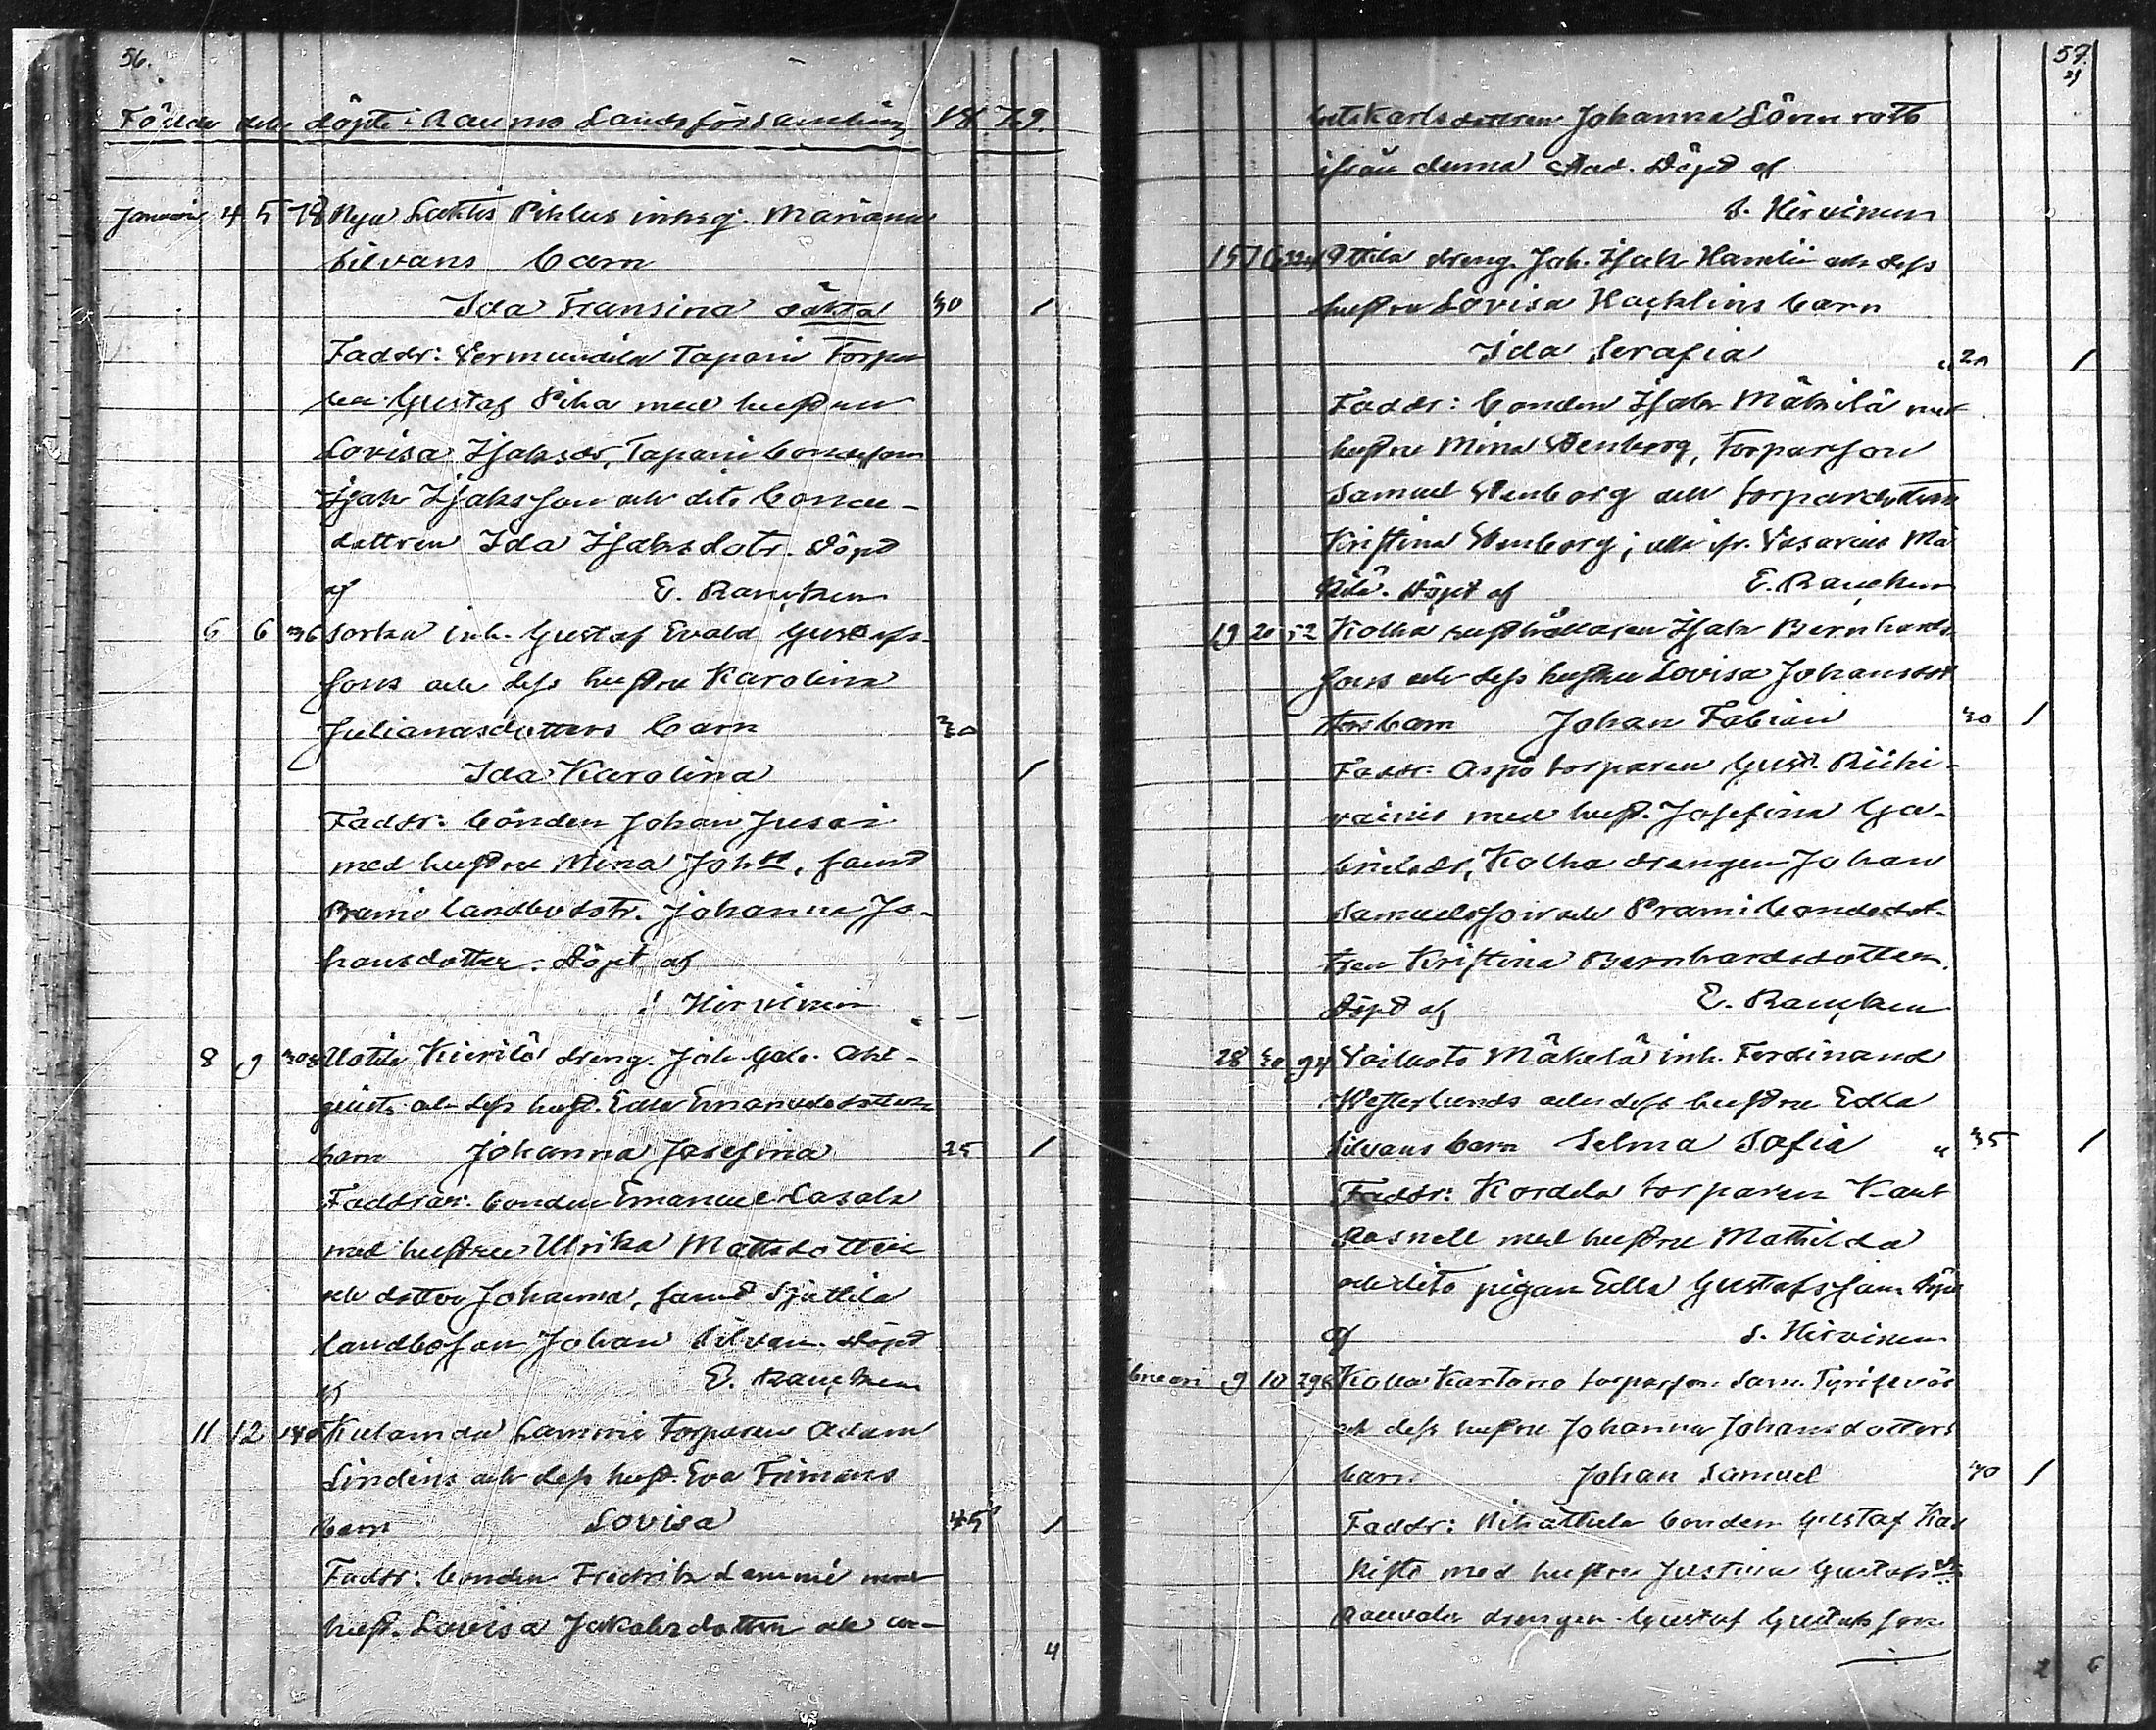 56.
Födde och döpte i Raumo Landsförsamling 1879.
Januari 4 5 78 Nya Lahtis Pihlus inhsg. Mariana
Silvans barn
Ida Fransina oäkta 30 1
Faddr: Vermundila Tapani Torpa
ren Gustaf Piha med hustrun
Lovisa Isaksdr, Tapani bondeson
Isak Isaksson och dito bonde-
dottren Ida Isaksdotr. Döpt
af E. Rancken
6 6 36 Sorka inh. Gustaf Evald Gustafs-
sons och dess hustru Karolina
Julianasdotters barn 30
Ida Karolina 1
Faddr: bonden Johan Jusai
med hustru Mina Joh, samt
landbodotr. Johanna Jo-
hansdotter. Döpt af
Hirvinen
8 9 Uotila Kierilä dreng. Joh. Gab.
och dess hust. Edla Emanuelsdotters
barn Johanna Josefina 25 1
Faddrar: bonden Emanuel Lasala
med hustru Ulrika Mattsdotter
och dotter Johanna, samt
landboson Johan Silvan. Döpt
af E. Rancken
11 12 Kulamaa Lammi Torparen Adam
Lindens och dess hust. Eva Frimans
barn Lovisa 45 1
Faddr: bonden Fredrik Lammi med
hust. Lovisa Jakobsdotter och
4
57.
Johanna Lönnroth
ifrån denna stad. Döpt af
S. Hirvinen
15 16 Uttila dreng. Joh. Isak Hamlin och dess
hustru Lovisa Hacklins barn
Ida Serafia " 20 1
Faddr: bonden Isak Mäkilä med
hustru Mina Stenborg, Torparson
Samuel Stenborg och torpardottren
Kristina Stenborg; alla ifr. Vasarais Mä
kilä. Döpt af E. Rancken
19 20 52 Kolla husthållaren Isak Bernhards-
sons och dess hustru Lovisa Johansdot
ters barn Johan Fabian 30 1
Faddr: Aspo torparen Gust. Riihi-
vainio med hust. Josefina Ga-
brielsdr, Kolla drengen Johan
Samuelsson och Prami bondedot-
tren Kristina Bernhardsdotter.
Döpt af E. Rancken
28 30 94 Voiluoto Mäkelä inh. Ferdinand
Westerlunds och dess hustru Edla
Silvans barn Selma Sofia " 35 1
Faddr: Kordela torparen Knut
Rosnell med hustru Mathilda
och dito pigan Edla Gustafsson. Döpt
af S. Hirvinen
9 10 Kolla Kartano torparson Sam.
och dess hustru Johanna Johansdotters
barn Johan Samuel 30 1
Faddr: bonden Gustaf
med hustru Justina Gustafsdr
Rauvola drengen Gustaf Gustafsson
2 6